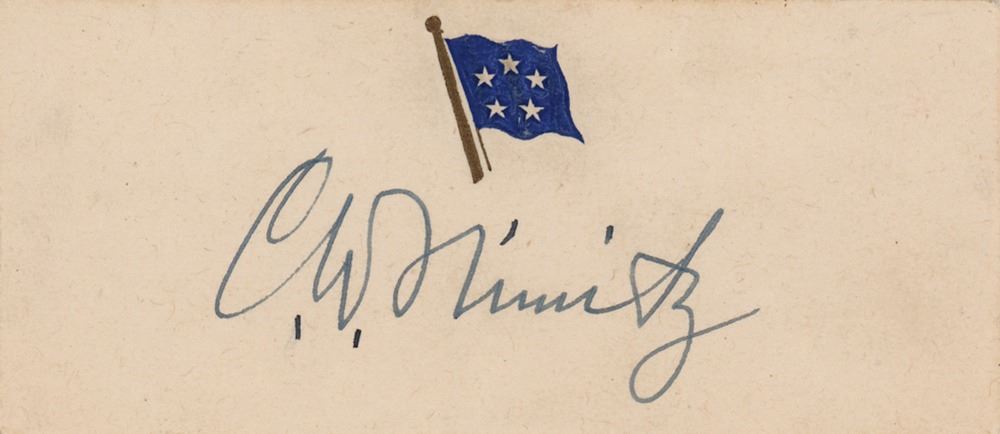 C. W. Nimitz